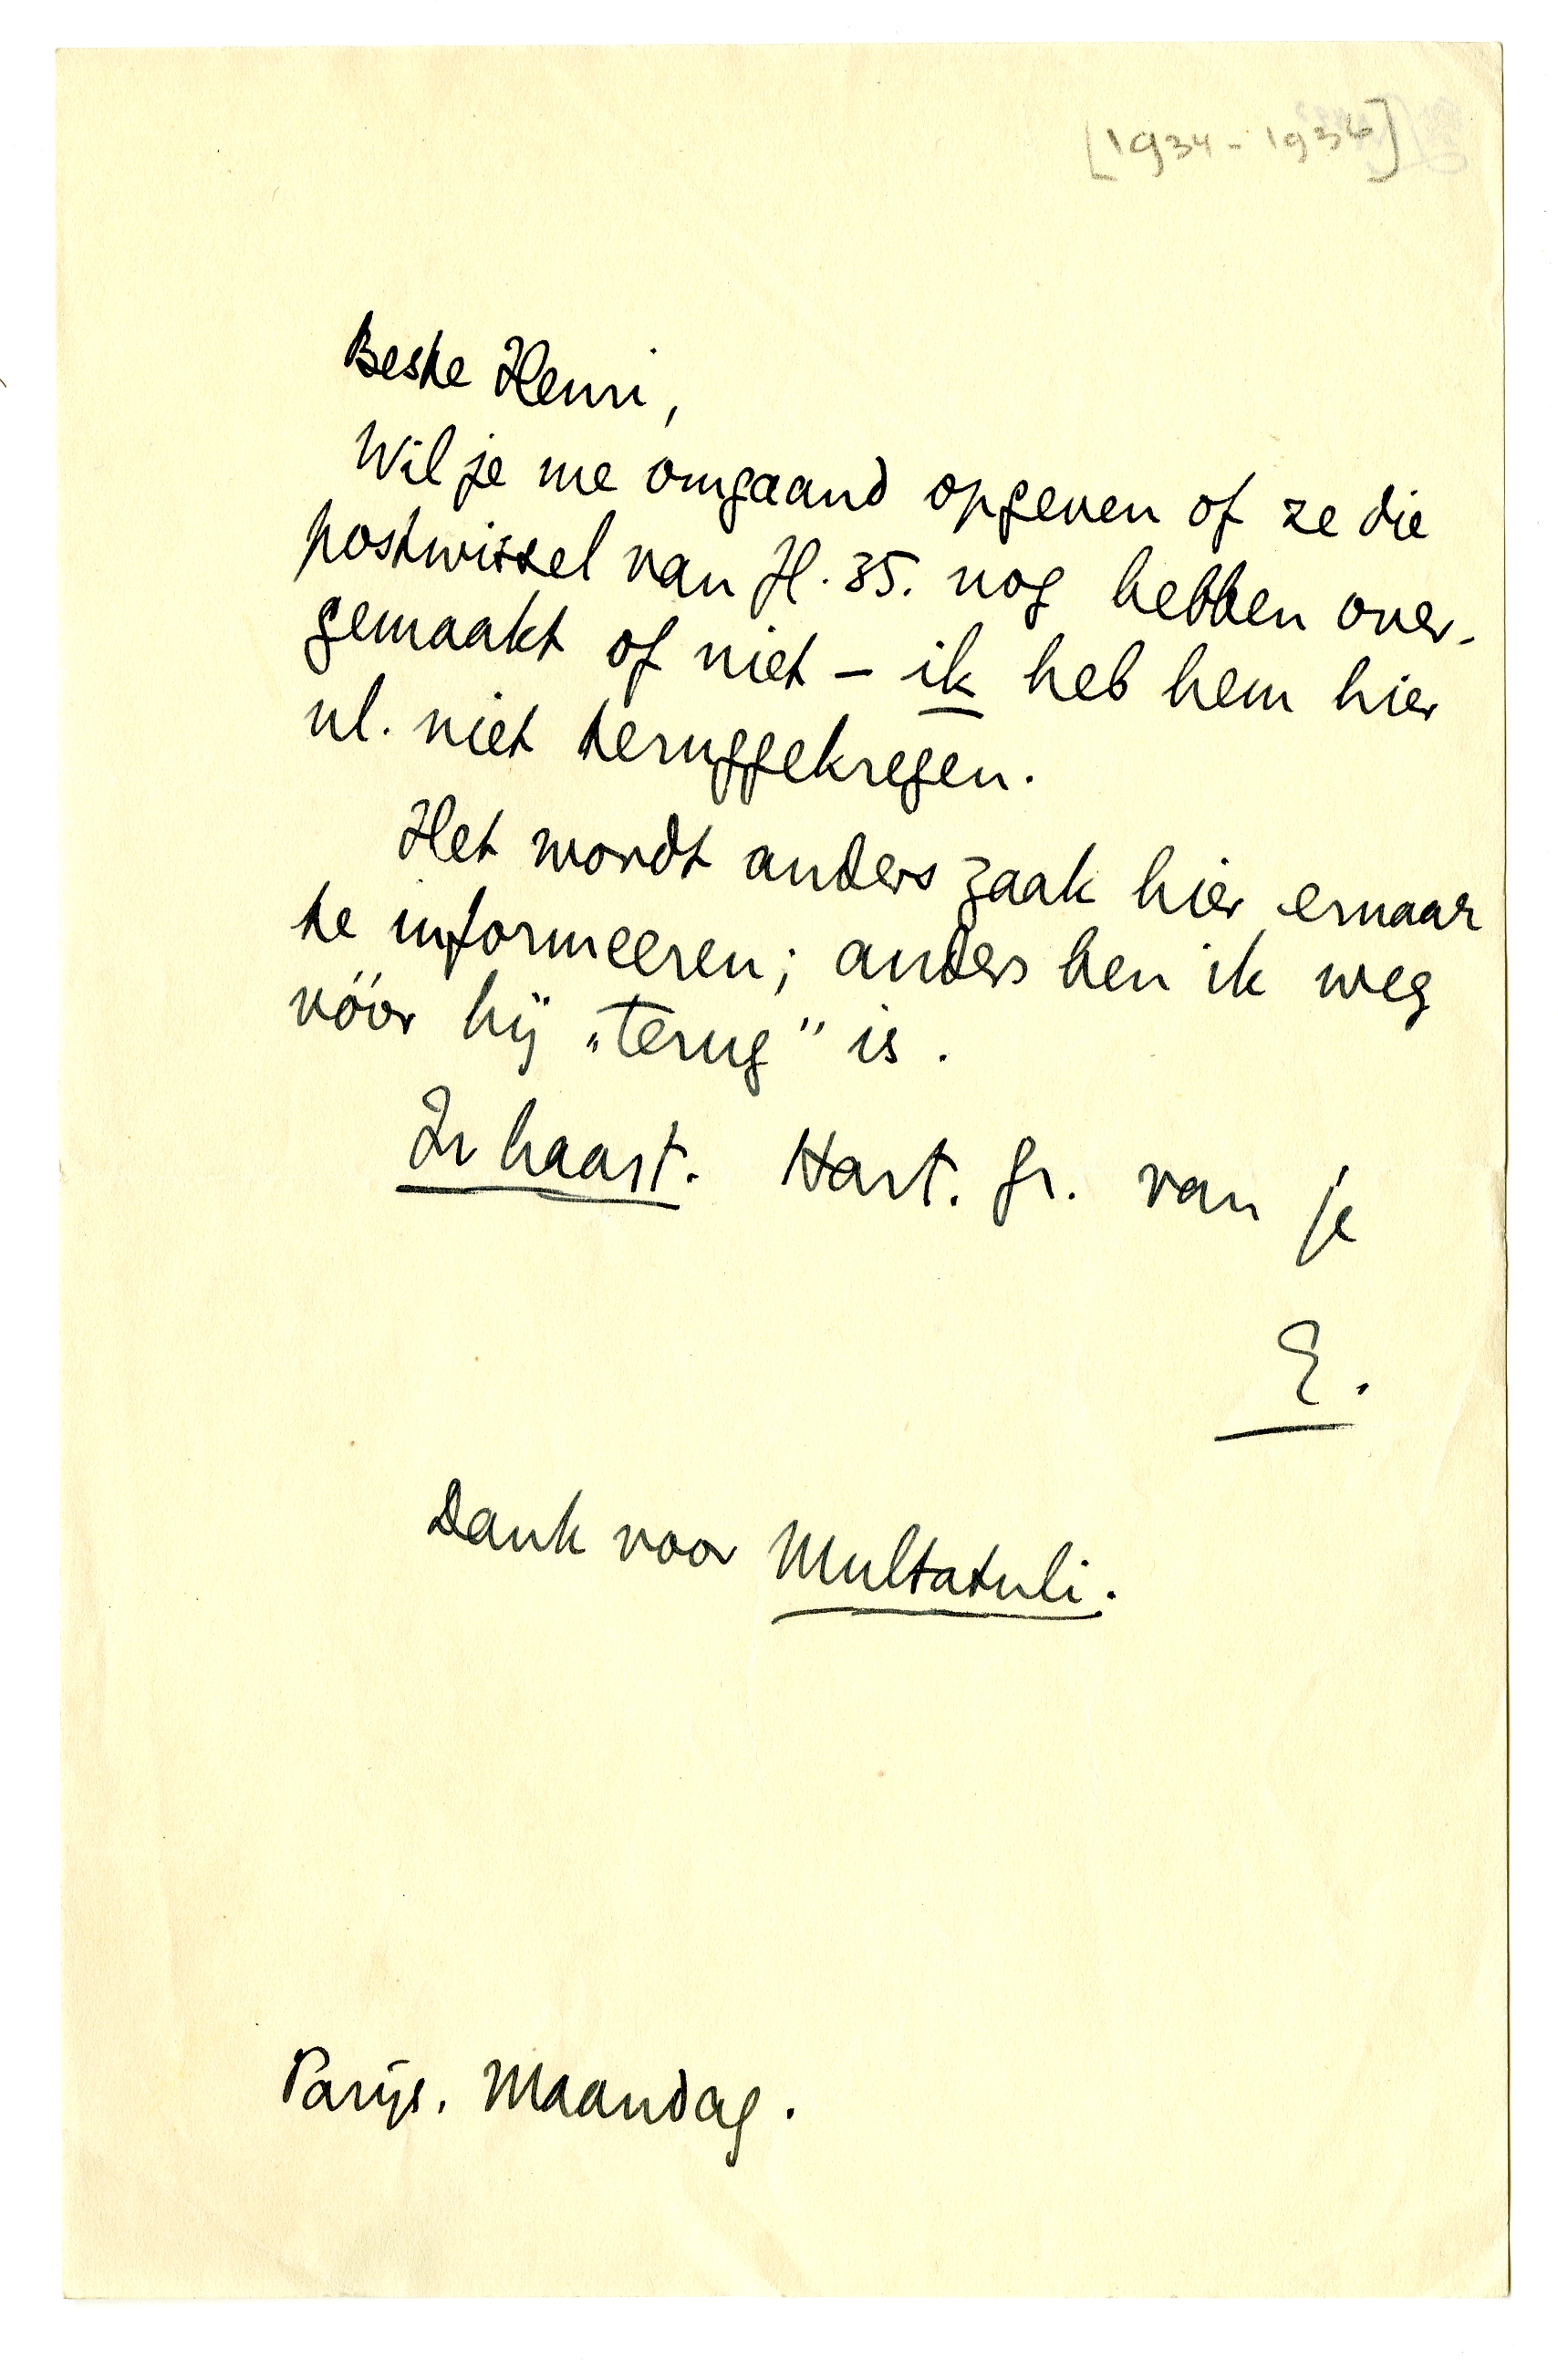 [1934-1936]
Beste Henri,
Wil je me omgaand opgeven of ze die
postwissel van fl. 35. nog hebben over-
gemaakt of niet – ik heb hem hier
nl. niet teruggekregen.
Het wordt anders zaak hier ernaar
te informeeren; anders ben ik weg
vóór hij „terug” is.
In haast. Hart. gr. van je
E.
Dank voor Multatuli.
Parijs. Maandag.